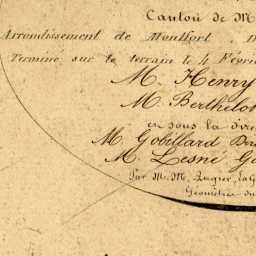 Canton de M
Arrondissement de Montfort
Terminé sur le terrain le 4 Févri
M. Henry
M. Berthelot
en sous la dire
M. Gobillard
M. Lesné Gé
Par M.M.
Géomètre du